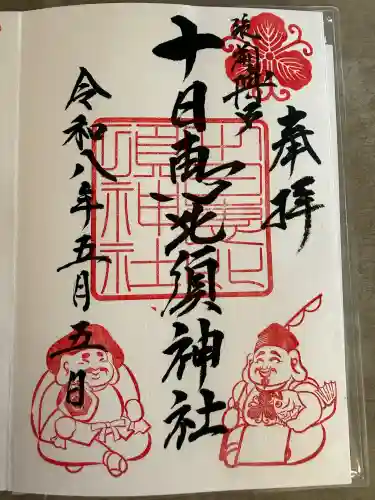 奉拝
筑前博多
十日恵比須神社
令和八年五月五日
十日恵比須神社